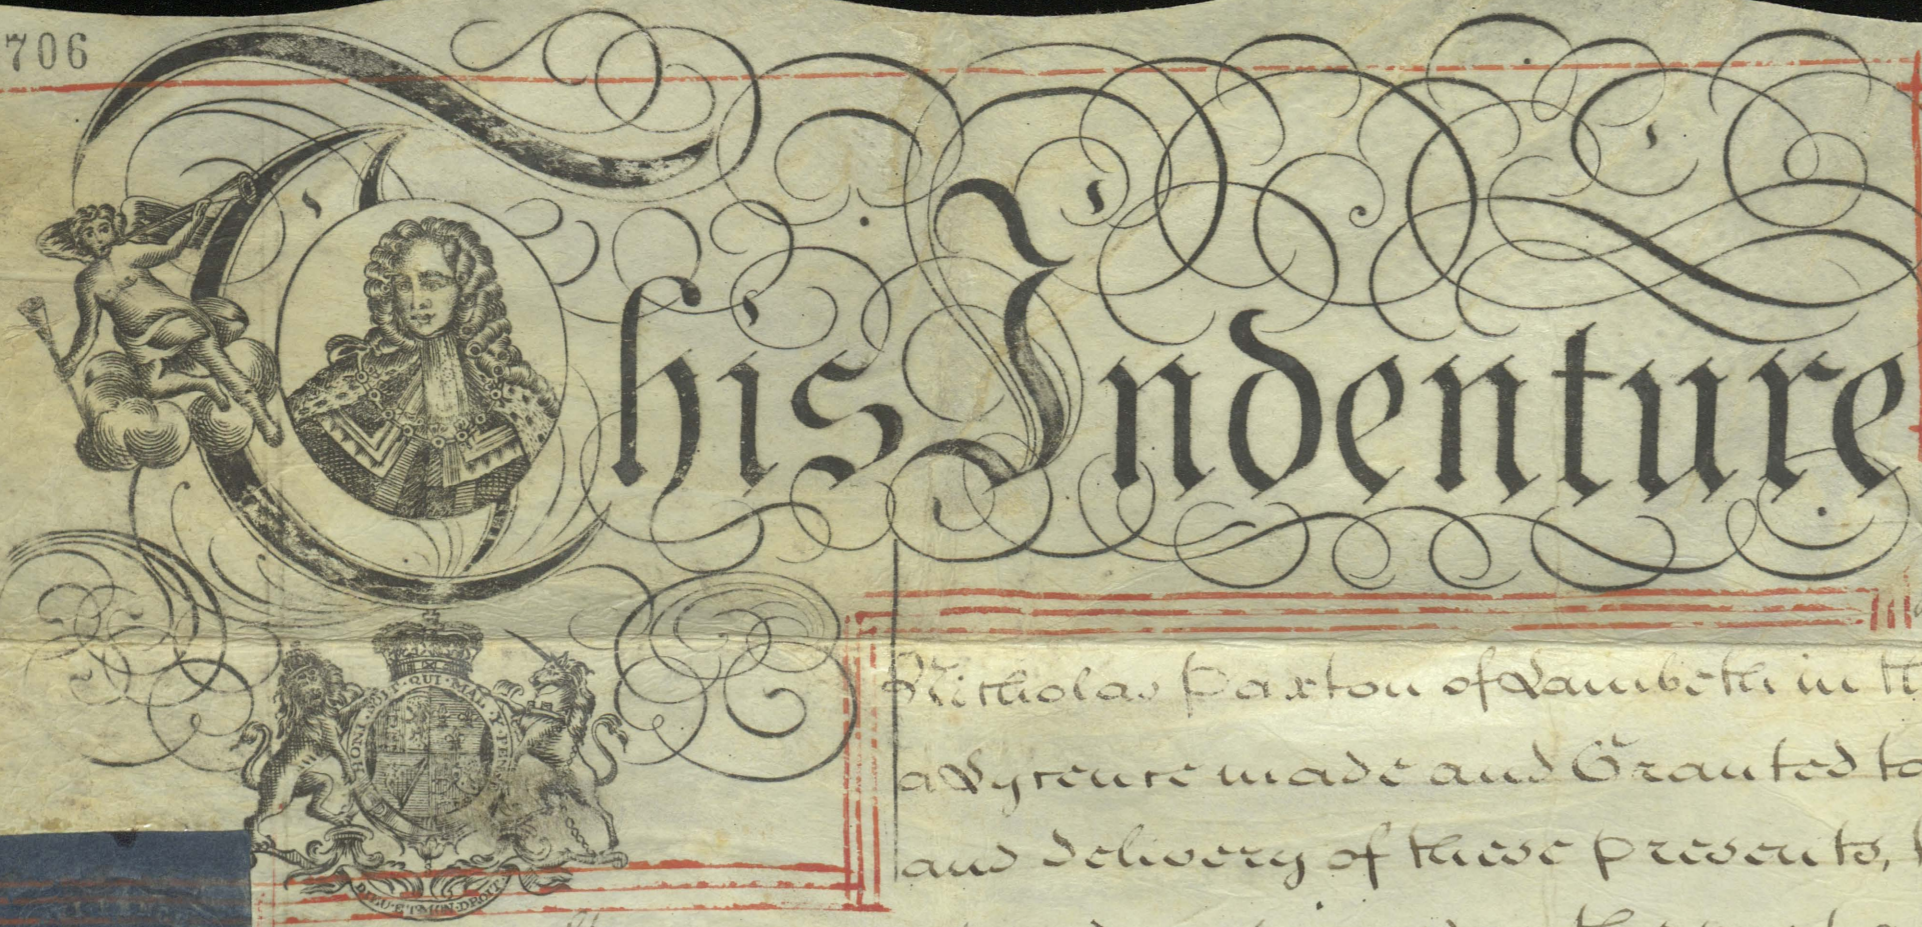 706
This Indenture
HONI·SOIT·QUI·MAL·Y·PE
DIEU·ET·MON·DROIT
Nicholas Paxton of Lambeth in th
a Lycence made and Granted to
and delivery of these presents,
VI·PENCE